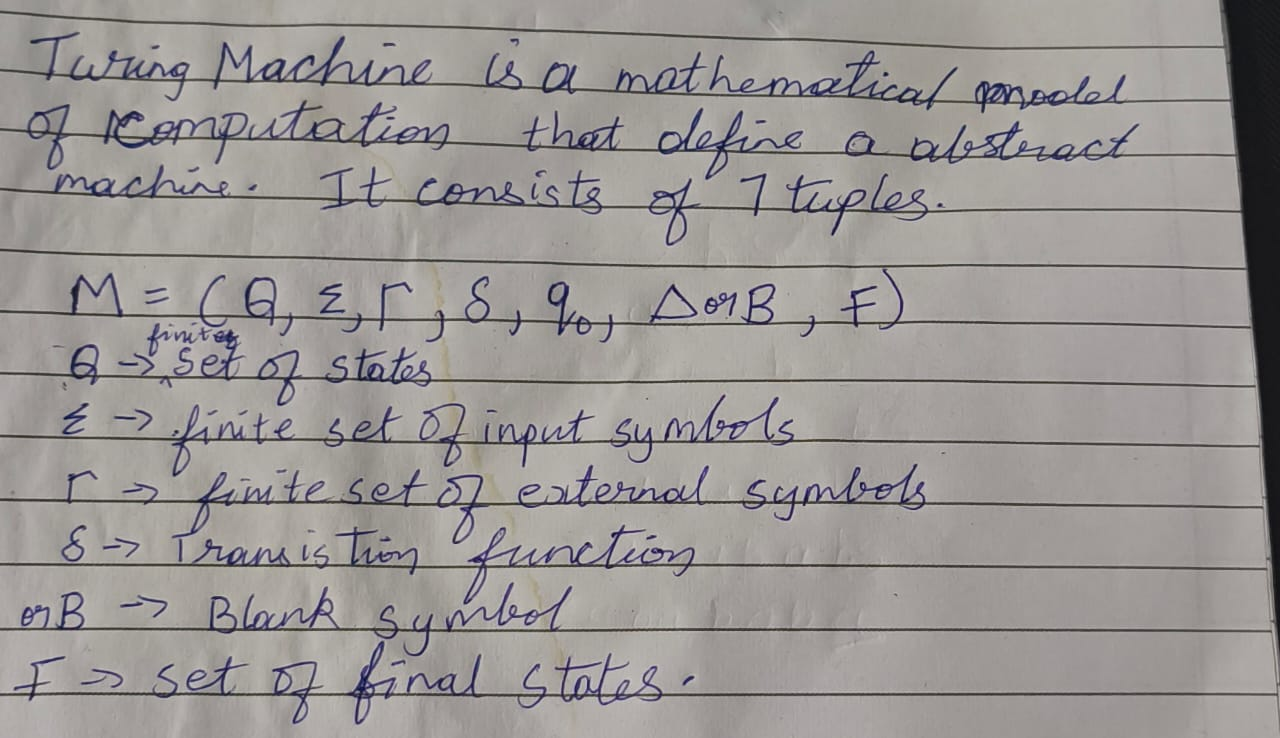 Turing Machine is a mathematical model
of Computation that define a abstract
machine. It consists of 7 tuples.
M = (Q, Σ, Γ, δ, q₀, Δ or B, F)
Q → finite set of states
Σ → finite set of input symbols
Γ → finite set of external symbols
δ → Transistion function
or B → Blank symbol
F → set of final states.